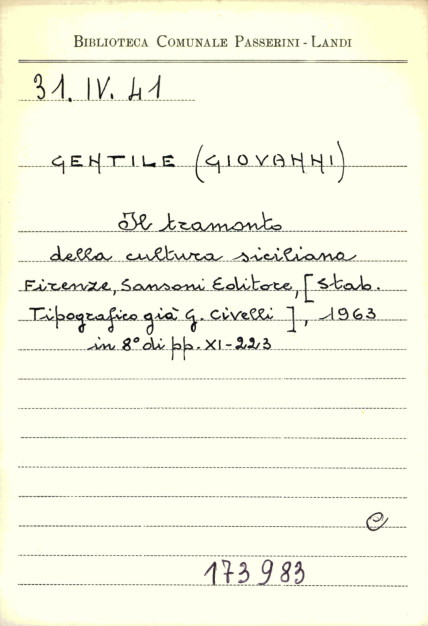 BIBLIOTECA COMUNALE PASSERINI - LANDI
31. IV. 41
GENTILE (GIOVANNI)
Il tramonto
della cultura siciliana
Firenze, Sansoni Editore, [Stab.
Tipografico già G. Civelli], 1963
in 8° di pp. XI-223
C
173983